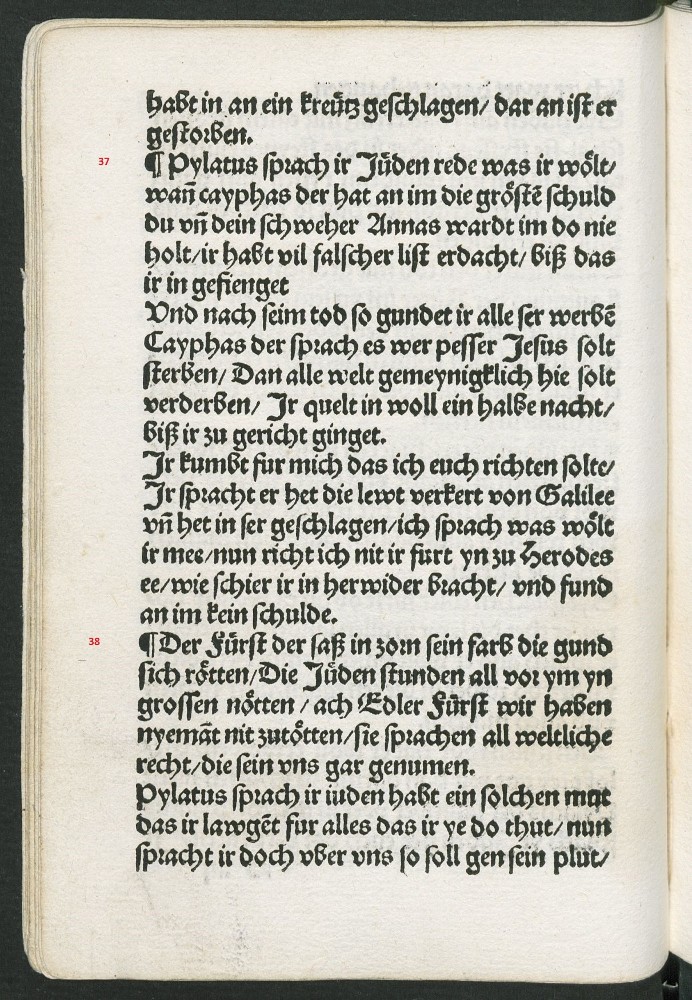 habt in an ein kreütz geschlagen/ dar an ist er
gestorben.
37
¶ Pylatus sprach ir Jüden rede was ir wölt/
wañ cayphas der hat an im die gröstē schuld
du vñ dein schweher Annas wardt im do nie
holt/ir habt vil falscher list erdacht/ biß das
ir in gefienget
Vnd nach seim tod so gundet ir alle ser werbē
Cayphas der sprach es wer pesser Jesus solt
sterben/ Dan alle welt gemeynigklich hie solt
verderben/ Jr quelt in woll ein halbe nacht/
biß ir zu gericht ginget.
Jr kumbt fur mich das ich euch richten solte/
Jr spracht er het die lewt verkert von Galilee
vñ het in ser geschlagen/ich sprach was wölt
ir mee/nun richt ich nit ir furt yn zu Herodes
ee/wie schier ir in herwider bracht/ vnd fund
an im kein schulde.
38
¶ Der Fürst der saß in zorn sein farb die gund
sich rötten/Die Jüden stunden all vor ym yn
grossen nötten / ach Edler Fürst wir haben
nyemāt nit zutötten/sie sprachen all weltliche
recht/die sein vns gar genumen.
Pylatus sprach ir iuden habt ein solchen mut
das ir lawgēt fur alles das ir ye do thut/ nun
spracht ir doch vber vns so soll gen sein plut/